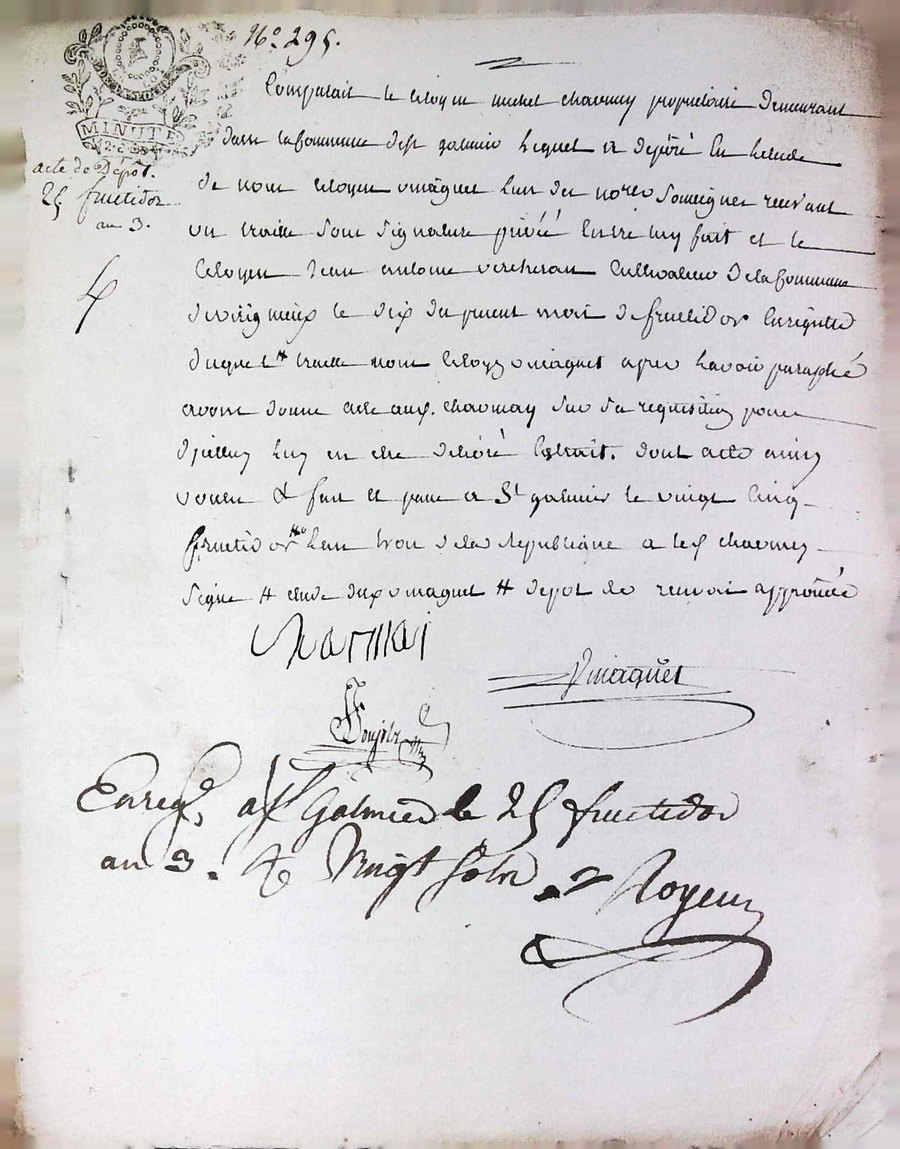 N.° 295.
MINUTE
acte de Dépot.
25 fructidor
an 3.
Comparait le citoyen michel chavmey proprietaire Demeurant
dans la Commune de st galmier Lequel a déposé En Letude
de nous citoyen omaguet Lun des nores soussignes recevant
un traitte sous signature privée Entre luy fait et le
Citoyen Jean antoine vercheran Cultivateur de la Commune
de virigneux le dix du present mois de fructidor Enregistré
duquel # traitté nous Citoyen omaguet apres Lavoir paraphé
avons donné acte aux. chavmay sur sa requisition pour
luy en etre délivré Extrait. dont acte ainsy
voulu & fait et passé a St galmier le vingt Cinq
fructidor Lan trois de la République a led chavmey
signé # etude dud omaguet # depot de renvoi approuvée
Charmai
Omaguet
Enregé, a St Galmier le 25 fructidor
an 3. Vingt Sols
Royeur